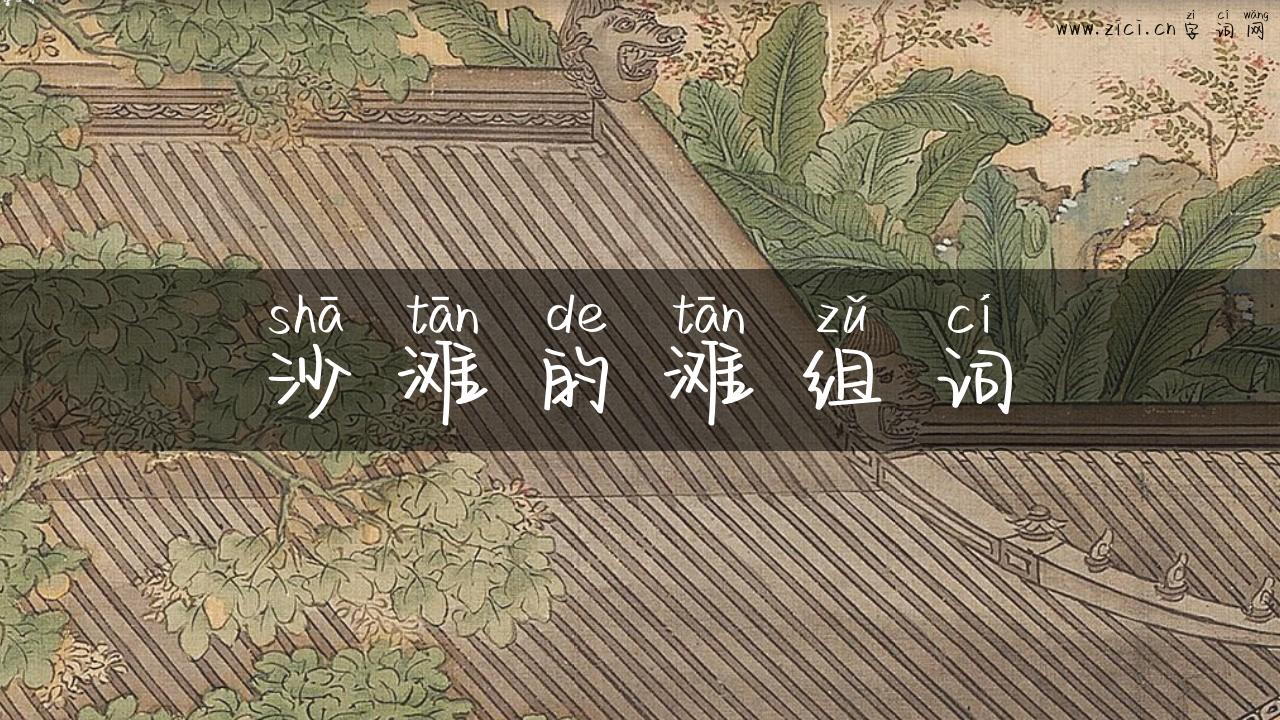 zì cí wǎng
www.zici.cn 字词网
shā tān de tān zǔ cí
沙滩的滩组词